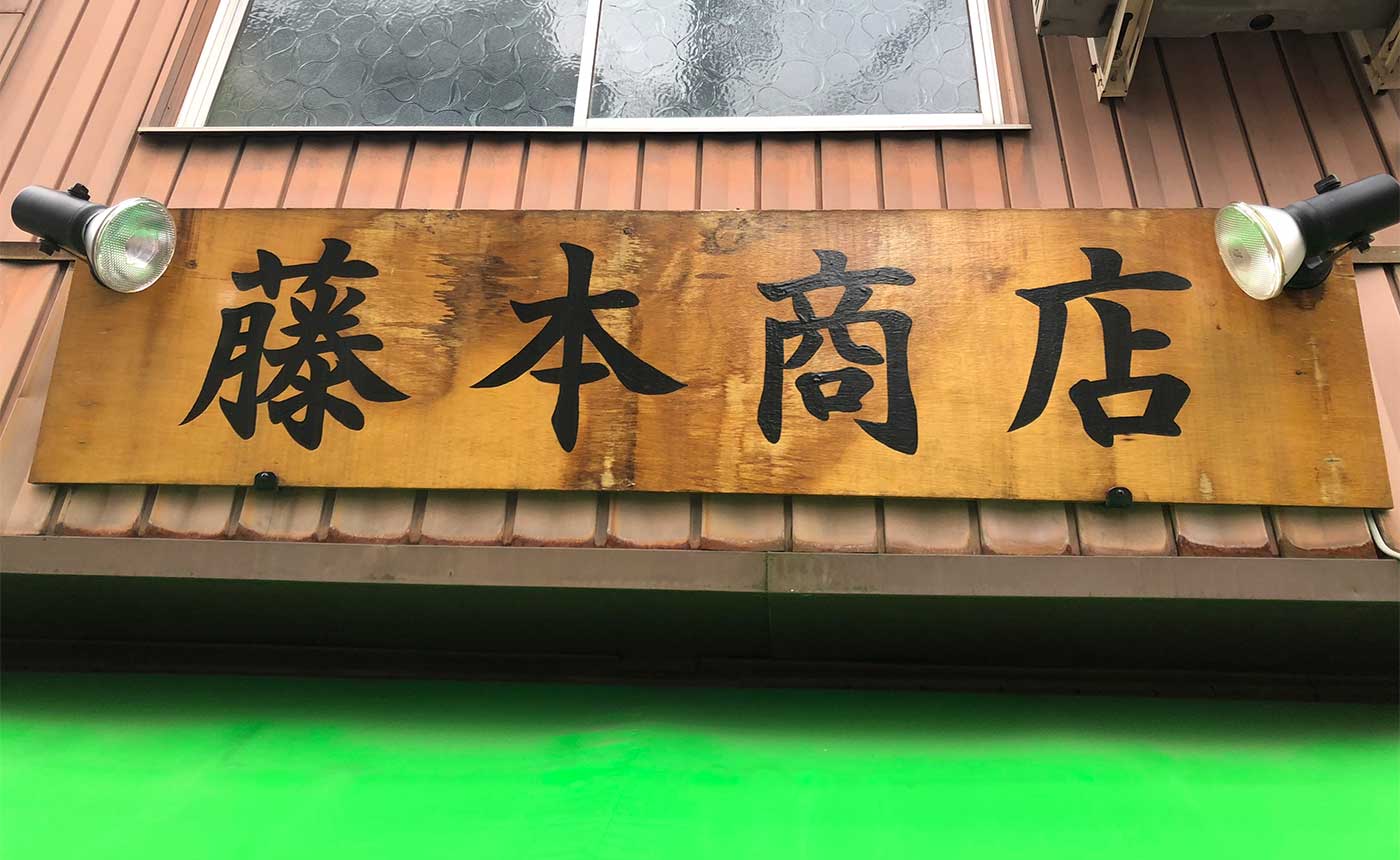 藤本商店